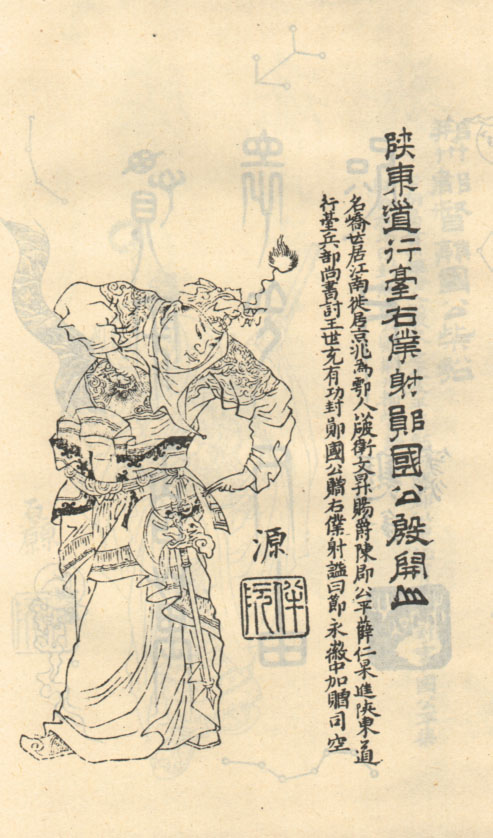 陝東道行臺右僕射鄖國公殷開山
名嶠世居江南徙居京兆為鄠人以破衛文昇賜爵陳郡公平薛仁杲進陝東道
行臺兵部尚書討王世充有功封鄖國公贈右僕射諡曰節永徽中加贈司空
源